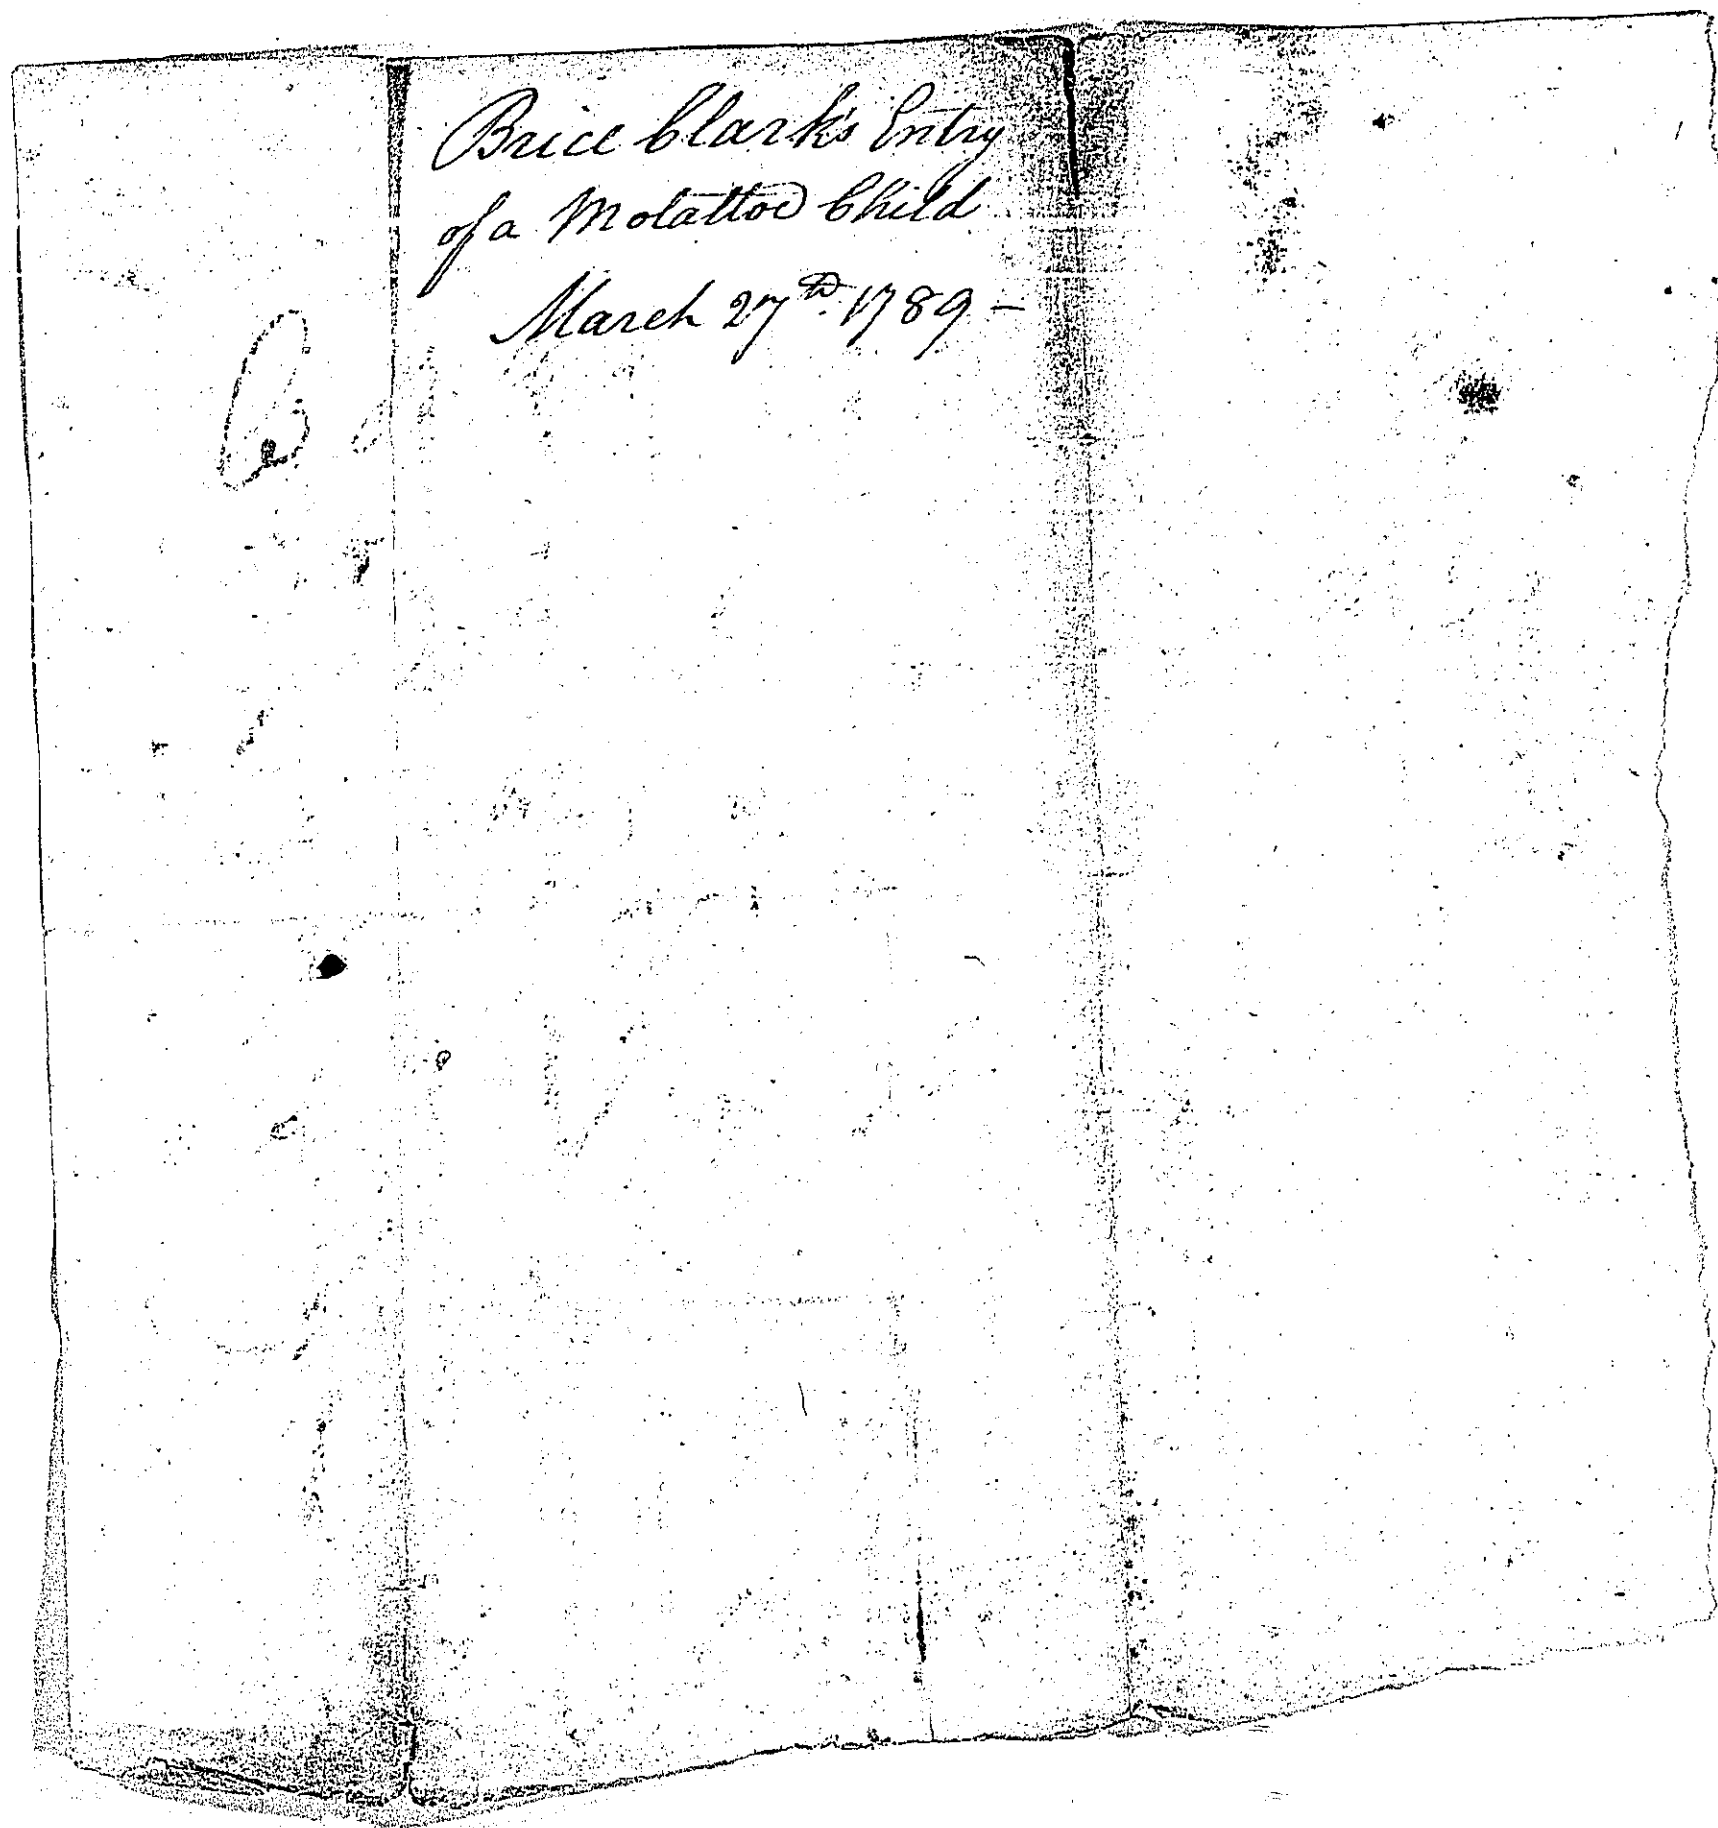 Brice Clark's Entry
of a Molattoe Child
March 27th. 1789 -